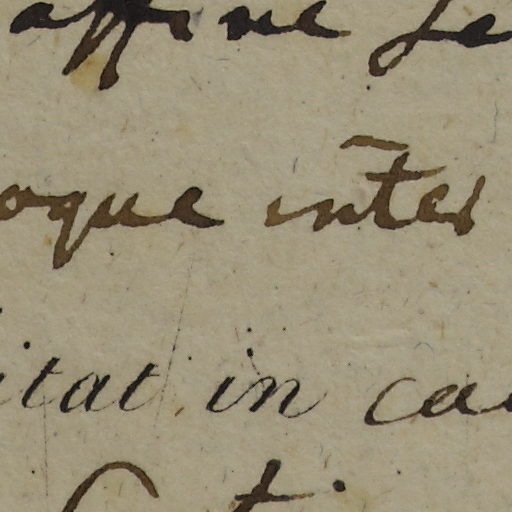 affine Le
oque inter
itat in ca